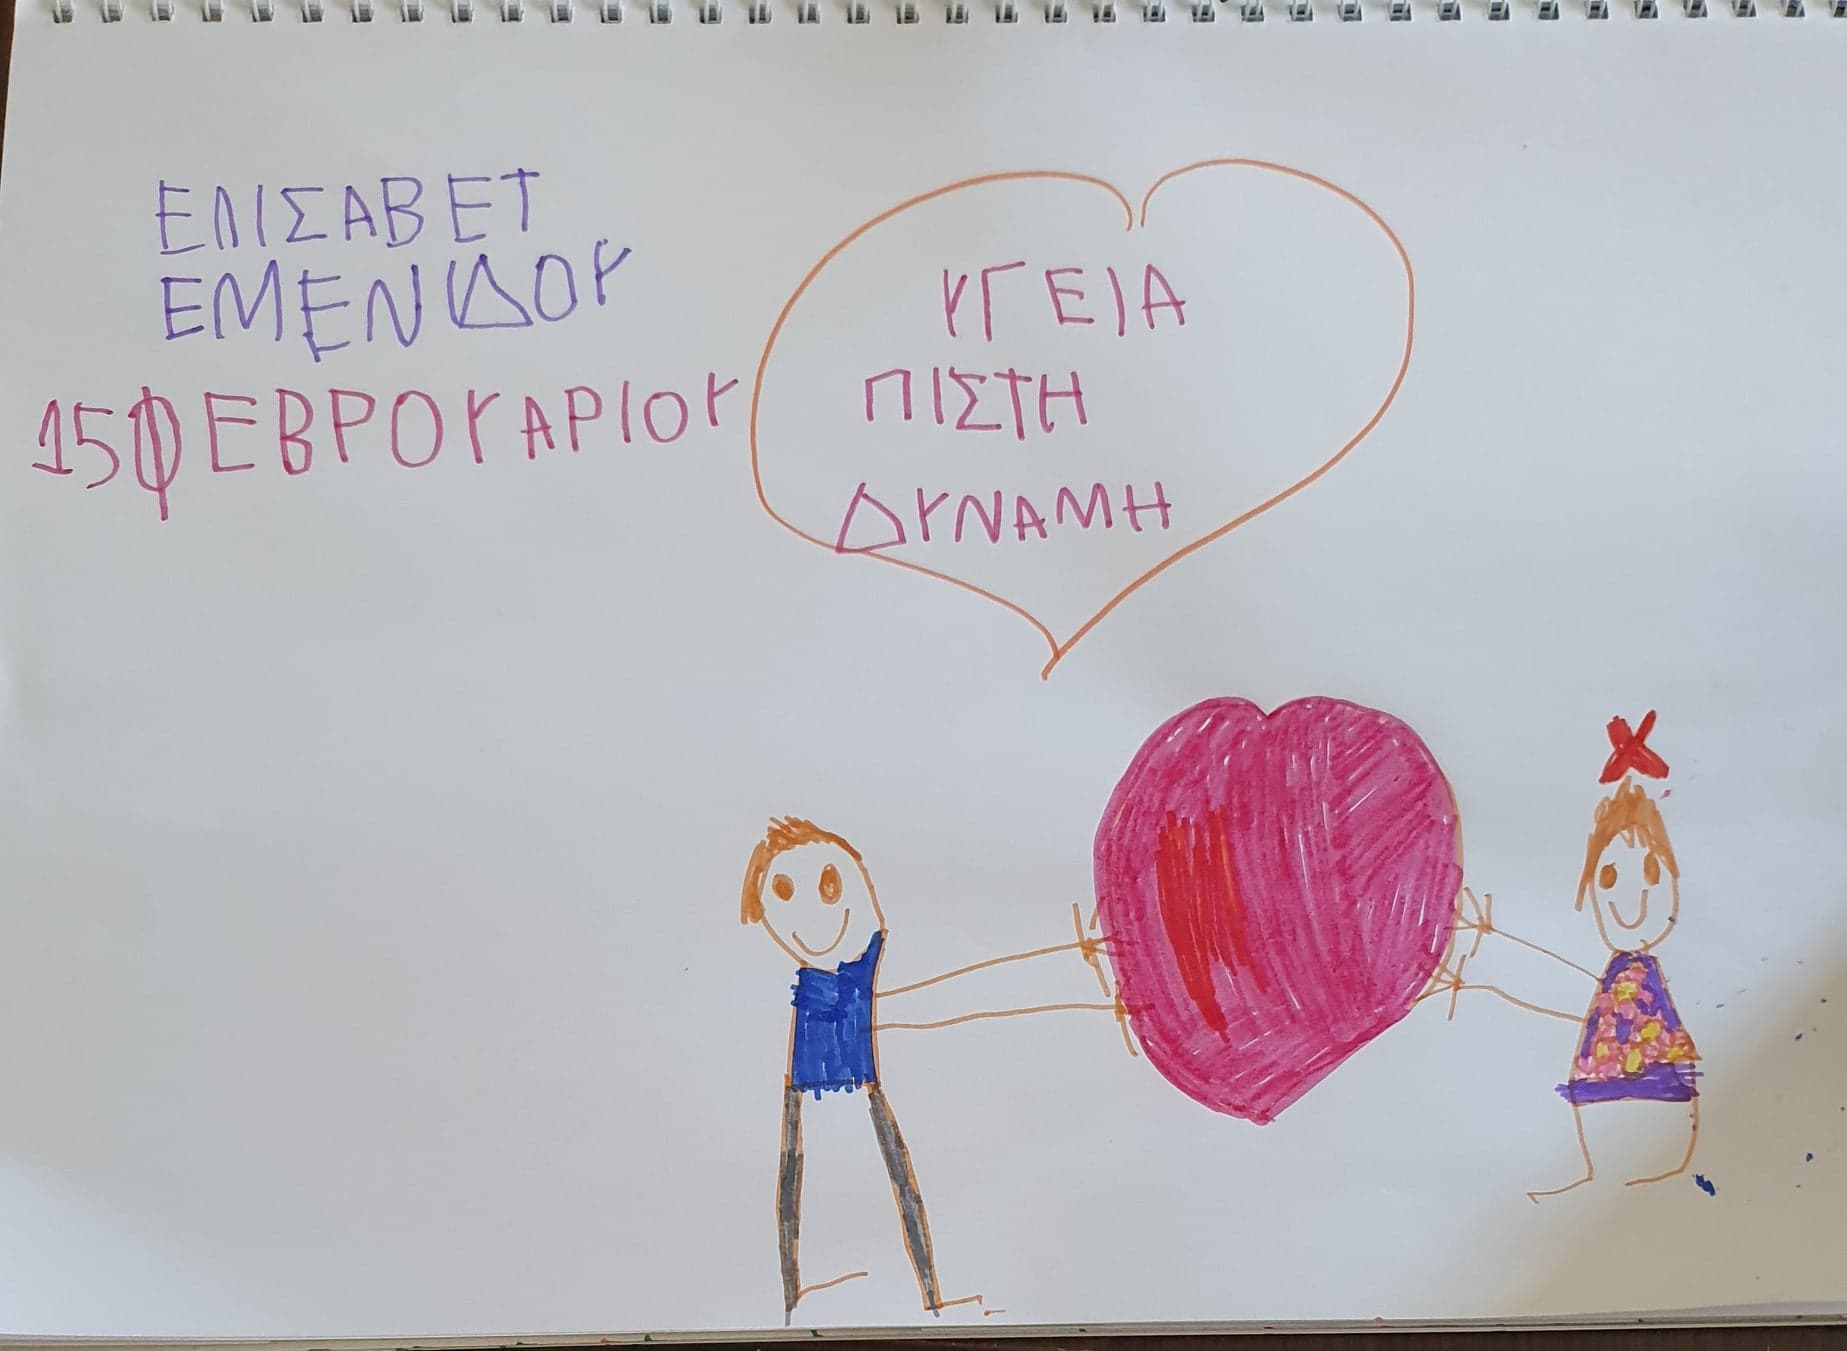 ΕΛΙΣΑΒΕΤ
ΕΜΕΝΙΔΟΥ
15ΦΕΒΡΟΥΑΡΙΟΥ
ΥΓΕΙΑ
ΠΙΣΤΗ
ΔΥΝΑΜΗ